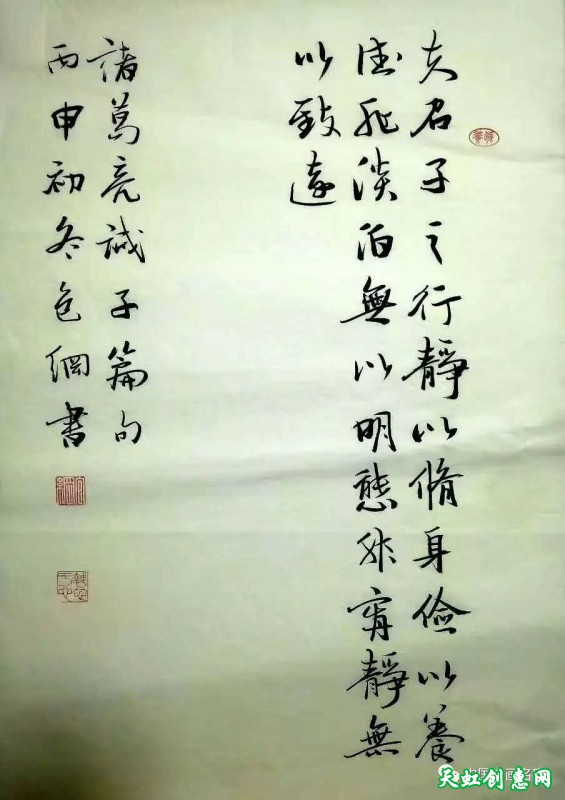 夫君子之行靜以脩身儉以養
德非淡泊無以明態非寧靜無
以致遠
諸葛亮誡子篇句
丙申初冬包綱書
天虹创惠网